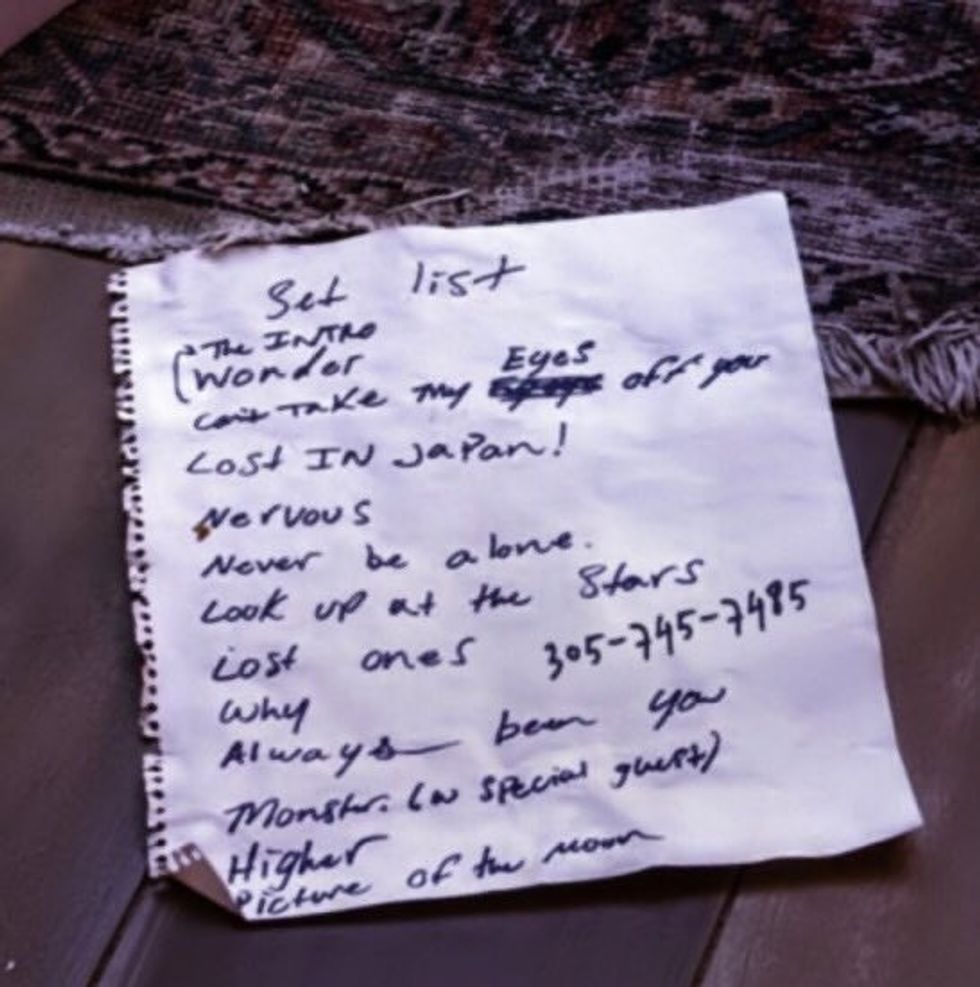 Set list
The INTRO
Wonder
Can't Take My Eyes off you
Lost IN Japan!
Nervous
Never be alone.
Look up at the Stars
Lost ones 305-745-7485
Why
Always been you
Monster. (w special guest)
Higher
Picture of the moon